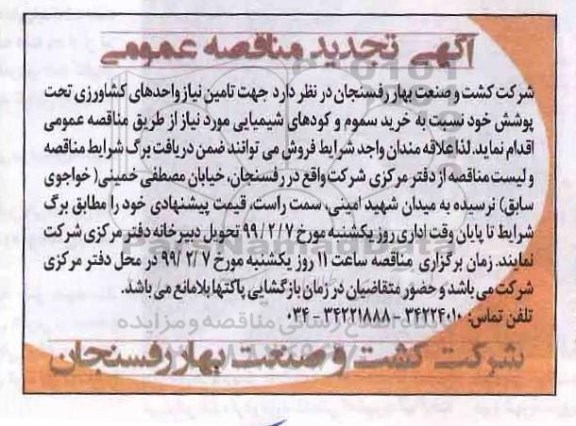 آگهی تجدید مناقصه عمومی
شرکت کشت و صنعت بهار رفسنجان در نظر دارد جهت تامین نیاز واحدهای کشاورزی تحت
پوشش خود نسبت به خرید سموم و کودهای شیمیایی مورد نیاز از طریق مناقصه عمومی
اقدام نماید. لذا علاقه مندان واجد شرایط فروش می توانند ضمن دریافت برگ شرایط مناقصه
و لیست مناقصه از دفتر مرکزی شرکت واقع در رفسنجان، خیابان مصطفی خمینی( خواجوی
سابق) نرسیده به میدان شهید امینی، سمت راست، قیمت پیشنهادی خود را مطابق برگ
شرایط تا پایان وقت اداری روز یکشنبه مورخ ۹۹/۲/۷ تحویل دبیرخانه دفتر مرکزی شرکت
نمایند. زمان برگزاری مناقصه ساعت ۱۱ روز یکشنبه مورخ ۹۹/۲/۷ در محل دفتر مرکزی
شرکت می باشد و حضور متقاضیان در زمان بازگشایی پاکتها بلامانع می باشد.
تلفن تماس: ۳۴۲۲۴۰۱۰ - ۳۴۲۲۱۸۸۸ - ۰۳۴
شرکت کشت و صنعت بهار رفسنجان
ParsNamadData